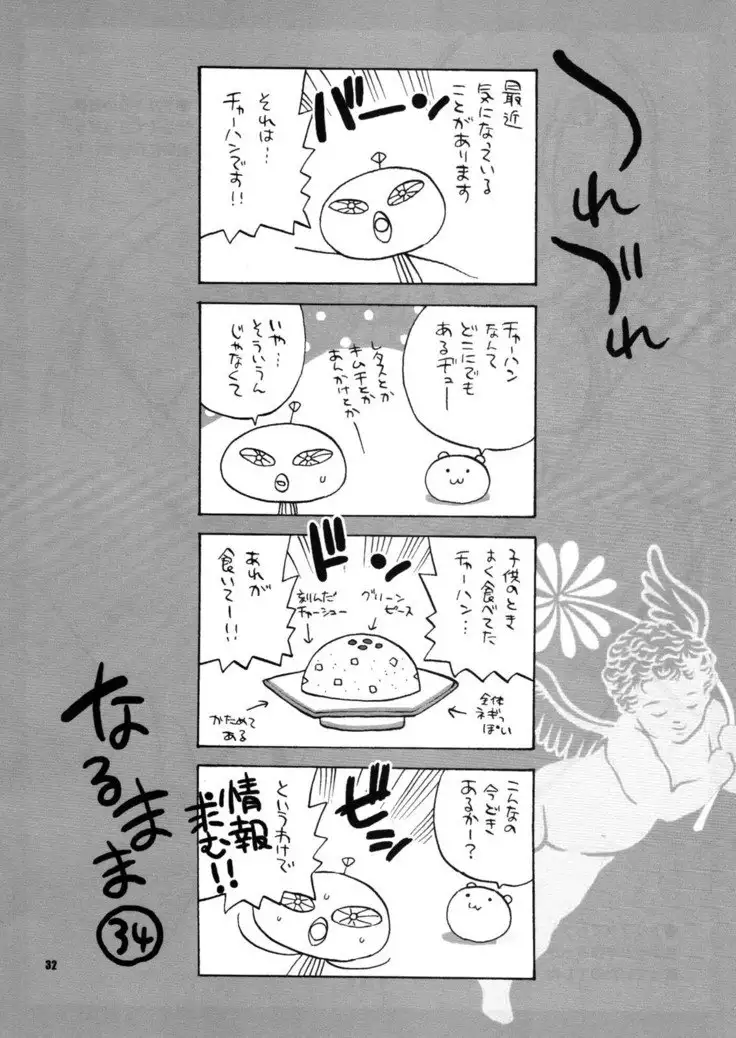 つれ
ぶれ
なるまま
34
最近
気になっている
ことがあります
バーン
それは…
チャーハンです!!
チャーハン
なんて
どこにでも
あるデュー
レタスとか
キムチとか
あんかけとか
いや…
そういうん
じゃなくて
子供のとき
よく食べてた
チャーハン…
ドン
グリーン
ピース
刻んだ
チャーシュー
あれが
食いてー!!
全体
ネギっ
ぽい
かためて
ある
こんなの
今どき
あるかー?
ビシ
というわけで
情報
求む!!
32